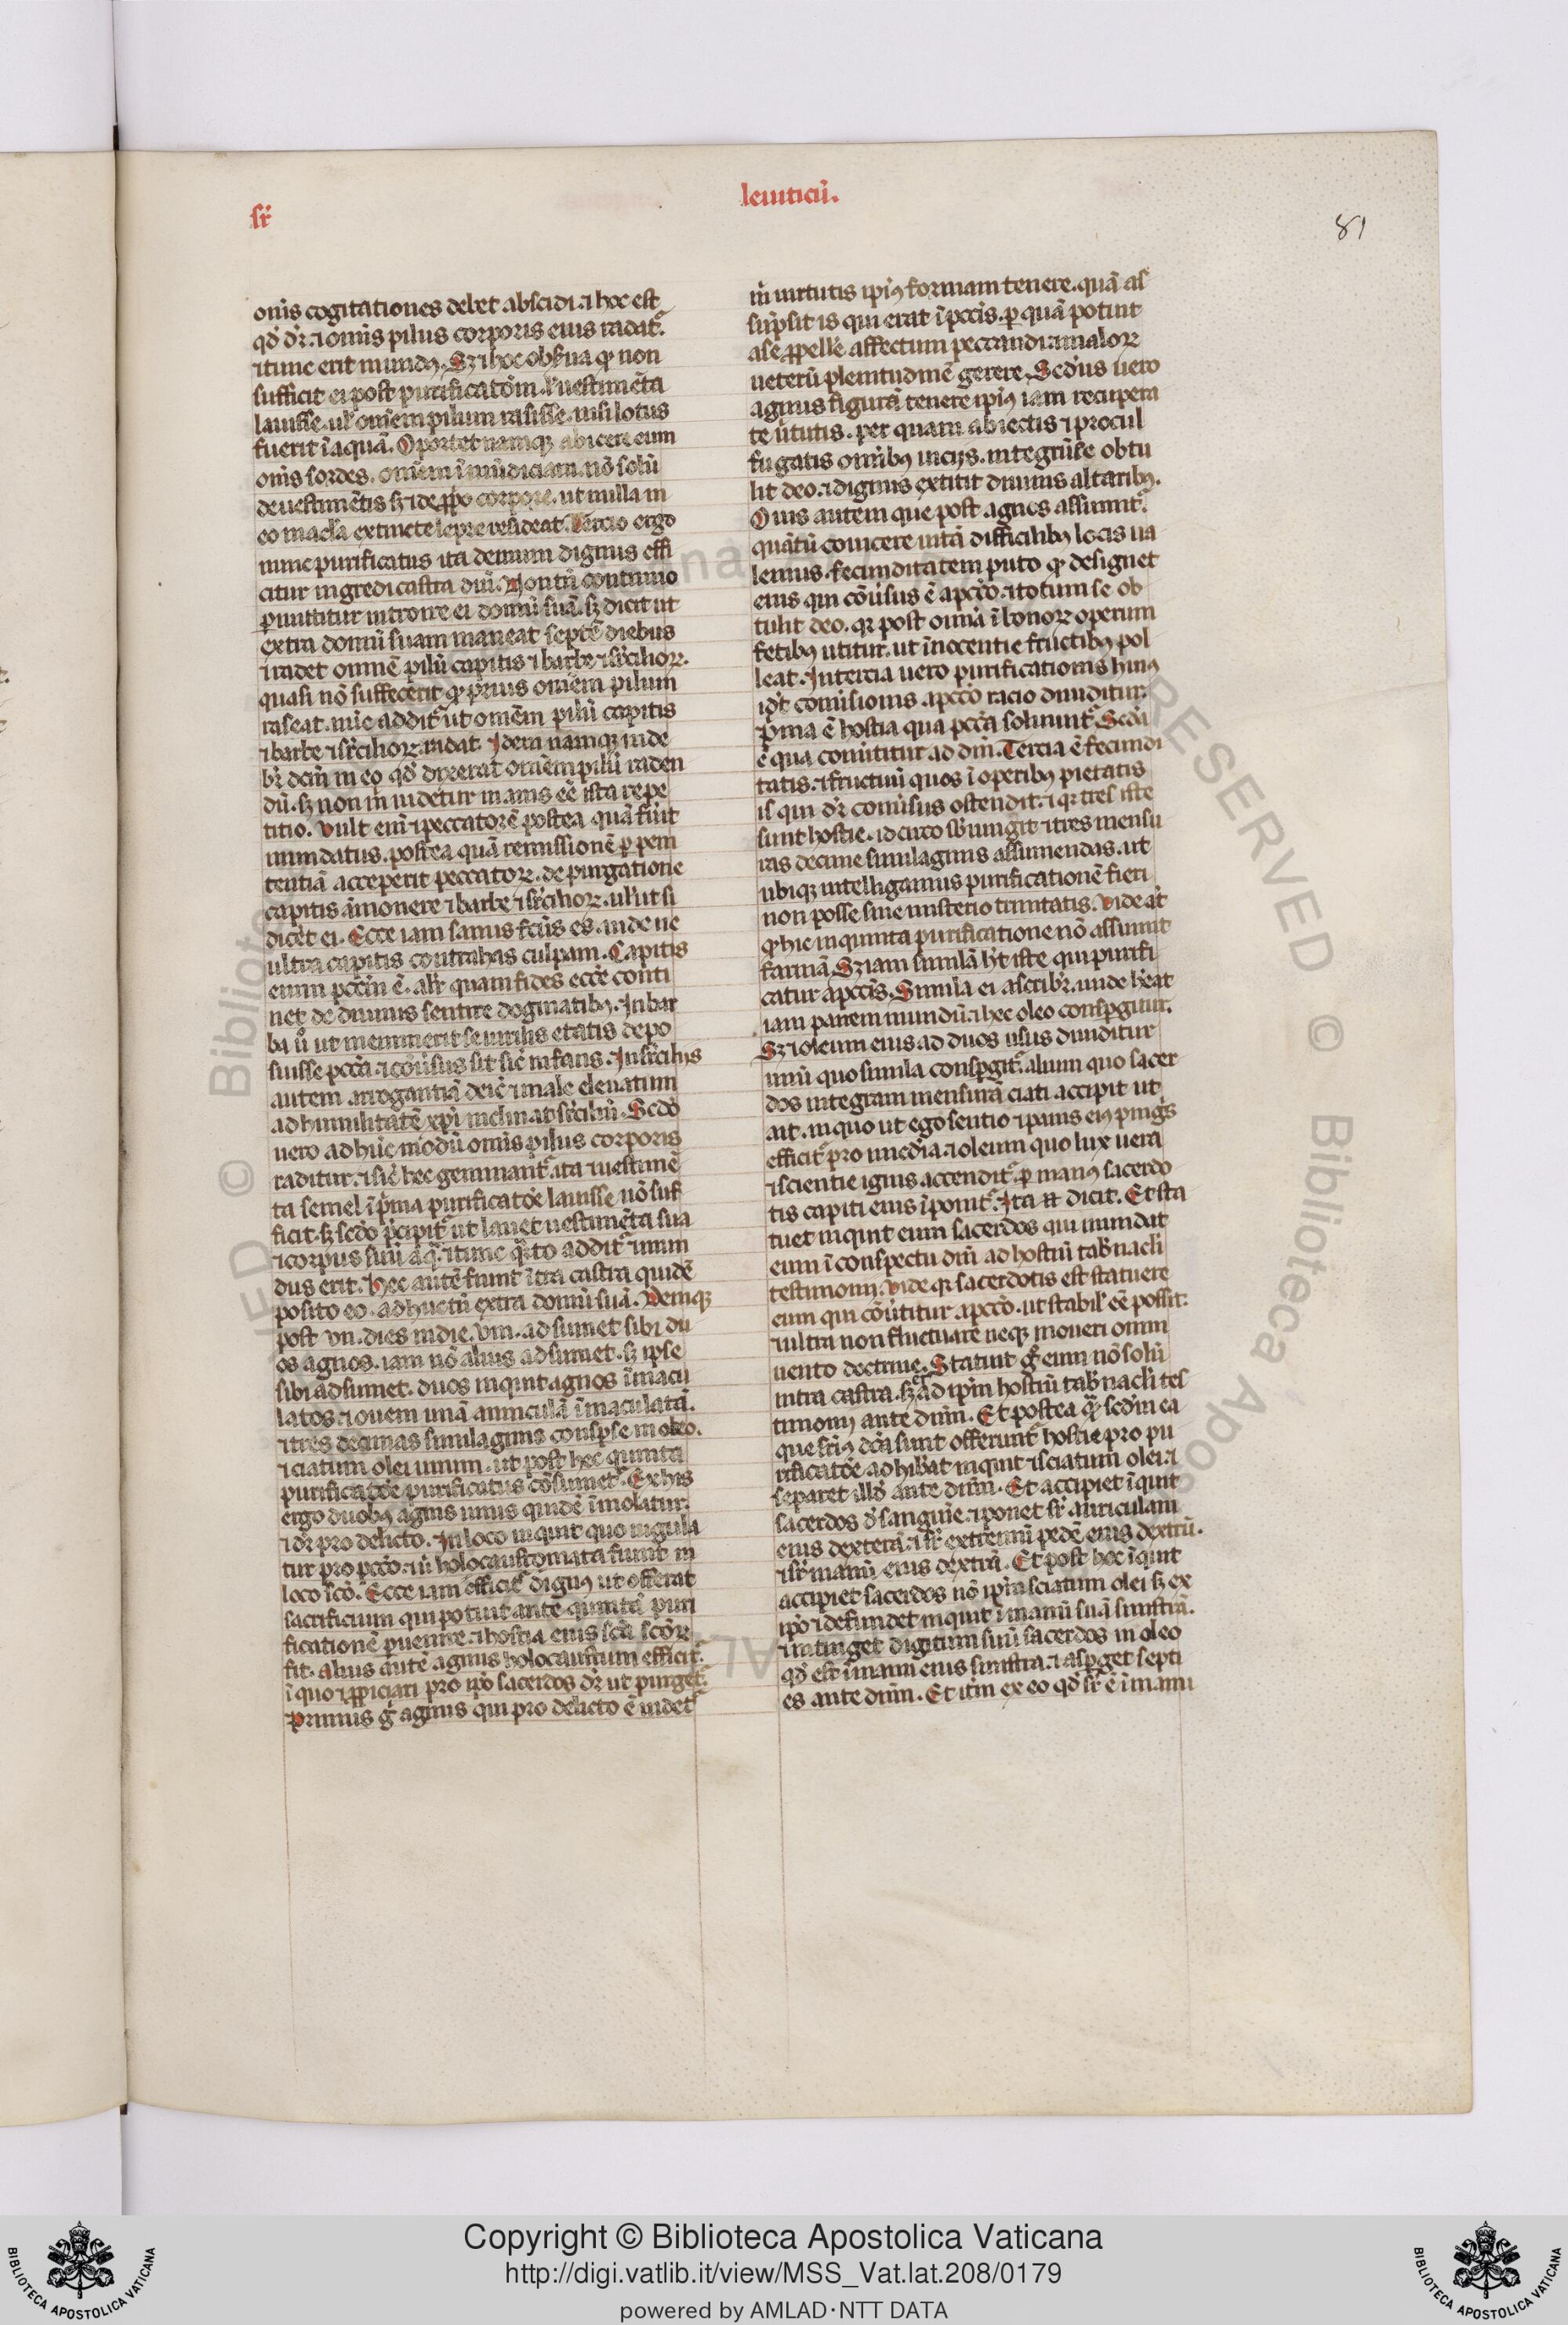 sr̄
leuiticū.
81
om̄s cogitationes debet abscidi. ⁊ hoc est
qd̓ dr̄. ⁊ om̄is pilus corporis eius radat᷑.
⁊ tunc erit mundꝰ. Sꝫ ⁊ hoc obs̓ua qͥ non
sufficit ei post purificatōm. l̓ uestimēta
lauisse. ul̓ om̄em pilum rasisse. nisi lotus
fuerit ī aquā. Oportet namqꝫ abicere eum
om̄s sordes. om̄em ī mūdiciam. nō solū
de uestimētis sꝫ ⁊ de ꝓp̓o corpore. ut nulla in
eo macl̓a extincte lepre resideat. Tercio ergo
nunc purificatus ita demum dignus effi
citur ingredi castra dn̄i. Non tn̄ continuo
ꝑmittitur introire ei domū suā. sꝫ dicit ut
extra domū suam maneat septē diebus
⁊ radet omnē pilū capitis ⁊ barbe ⁊ sr̓cilioꝝ.
quasi nō suffecerit qͥ prius om̄em pilum
raserat. nūc addit᷑ ut omēm pilū capitis
⁊ barbe ⁊ sr̓cilioꝝ. radat. Idem namqꝫ uide
br̄ dcm̄ in eo qd̓ dixerat om̄em pilū raden
dū. sꝫ non m̄ uidetur inanis eē ista repe
titio. Uult enī ⁊ peccatorē postea quā fūit
mundatus. postea quā remissionē ꝑ peni
tentiā acceperit peccatoꝝ. de purgatione
capitis āmonere ⁊ barbe ⁊ sr̓cilioꝝ. ul̓ ut si
dicet ei. Ecce iam sanus fc̄us es. uide ne
ultra capitis contrahas culpam. Capitis
enim pcc̄m ē. alr̓ quam fides ecc̄e conti
net de diuinis sentire dogmatibꝰ. In bar
ba ů ut meminerit se uirilis etatis depo
suisse pcc̄a. ⁊ cōūsus sit sic̄ infans. In sr̓cilijs
autem arrogantiā deic̄e ⁊ male eleuatum
ad humilitatē xp̄i inclinat sr̓ciliū. Scd̓o
uero ad hūc modū omis pilus corporis
raditur. ⁊ sic̄ hec geminant᷑. ita ⁊ uestimē
ta semel ī p̓ma purificatōe lauisse nō suf
ficit. sꝫ scd̓o p̓cipit᷑ ut lauet uestimēta sua
⁊ corpus suū aq̄. ⁊ tunc qͣrto addit᷑ ⁊ mun
dus erit. Hec autē fiunt ītra castra quidē
posito eo. adhuc tn̄ extra domū suā. Deniqꝫ
post vii. dies in die. viii. adsumet sibi du
os agnos. iam nō alius adsumet. sꝫ ipse
sibi adsumet. duos inquit agnos īmacu
latos. ⁊ ouem unā anniculā īmaculatā.
⁊ tres decimas similaginis consp̓se in oleo.
⁊ ciatum olei unum. ut post hec quinta
purificatōe purificatus cōsumet᷑. Ex his
ergo duobꝰ agnis unus quidē īmolatur.
⁊ dr̄ pro delicto. In loco inquit quo iugula
tur pro pcc̄o. ⁊ ů holocaustomata fiunt in
loco sc̄o. Ecce iam efficit᷑ dignꝰ ut offerat
sacrificium qui potuit ante quintā puri
ficationē ꝑuenire. ⁊ hostia eius sc̄a sc̄oꝝ
fit. Alius autē agnus holocaustum efficit᷑.
ī quo ⁊ ꝓpiciari pro ip̄o sacerdos dr̄ ut purget᷑.
Primus g̊ agnus qui pro delicto ē uidet᷑
m̄ uirtutis ipīꝰ formam tenere. quā as
sūpsit is qui erat ī pcc̄is. ꝑ quā potuit
a se ꝓpell̓e affectum peccandi. ⁊ maloꝝ
ueterū plenitudinē gerere. Scd̓us uero
agnus figurā tenere ipīꝰ iam recupera
te ūtutis. per quam abiectis ⁊ procul
fugatis omībꝰ uicijs. integrū se obtu
lit deo. ⁊ dignus extitit diuinis altaribꝰ.
Ouis autem que post agnos assumit᷑.
quātū conicere ītā difficilibꝰ locis ua
lemus. fecunditatem puto qͥ designet
eius qui cōūsus ē a pcc̄o. ⁊ totum se ob
tulit deo. qꝛ post om̄ia ī bonoꝝ operum
fetibꝰ utitur. ut īnocentie fructibꝰ pol
leat. In tercia uero purificationis huiꝰ
id̓ ÷ conūsionis a pcc̄o racio diuiditur.
P̓ma ē hostia qua pcc̄a soluunt᷑. Scd̓a
ē qua conūtitur ad dm̄. Tercia ē fecundi
tatis. ⁊ fructuū quos ī operibꝰ pietatis
is qui dr̄ conūsus ostendit. ⁊ qꝛ tres iste
sunt hostie. idcirco sb̓iungit ⁊ tres mensu
ras decime similaginis assumendas. ut
ubiqꝫ intelligamus purificationē fieri
non posse sine misterio trinitatis. Uide at̓
qͥ hic in quinta purificatione nō assumit
farinā. Sꝫ iam similā hꝫ iste qui purifi
catur a pcc̄is. Simila ei ascribr̄. unde hēat
iam panem mundū. ⁊ hec oleo consp̓gitur.
Sꝫ ⁊ oleum eius ad duos usus diuiditur
unū quo simila consp̓git᷑. alium quo sacer
dos integram mensurā ciati accipit ut
ait. in quo ut ego sentio ⁊ panis eiꝰ pinguis
efficit᷑ pro īmedia. ⁊ oleum quo lux uera
⁊ scientie ignis accendit᷑. ꝑ manꝰ sacerdo
tis capiti eius īponit᷑. Ita n̄ dicit. Et sta
tuet inquit eum sacerdos qui mundat
eum ī conspectu dn̄i ad hostiū tab̓nacl̓i
testimonij. Uide qꝛ sacerdotis est statuere
eum qui cōūtitur a pcc̄o. ut stabil̓ eē possit.
⁊ ultra non fluctuare neqꝫ moueri omni
uento doctrine. Statuit g̊ eum nō solū
intra castra. sꝫ ⁊ ad ipm̄ hostiū tab̓nacl̓i tes
timonij ante dnm̄. Et postea qͣ scd̓m ea
que s̓ius dc̄a sunt offerunt᷑ hostie pro pu
rificatōe adhibeat inquit ⁊ sciatum olei. ⁊
separet illd̓ ante dnm̄. Et accipiet īquit
sacerdos d̓ sanguīe. ⁊ ponet sr̄ auriculam
eius dexterā. ⁊ sr̄ extremū pedē eius dextrū.
⁊ sr̄ manū eius dextrā. Et post hec īquit
accipiet sacerdos nō ipm̄ sciatum olei sꝫ ex
ip̄o ⁊ defundet inquit ī manū suā sinistrā.
⁊ intinget digitum suū sacerdos in oleo
qd̓ est ī manu eius sinistra. ⁊ asp̓get septi
es ante dnm̄. Et itm̄ ex eo qd̓ sr̄ ē ī manu
Copyright © Biblioteca Apostolica Vaticana
http://digi.vatlib.it/view/MSS_Vat.lat.208/0179
powered by AMLAD·NTT DATA
BIBLIOTECA APOSTOLICA VATICANA
BIBLIOTECA APOSTOLICA VATICANA